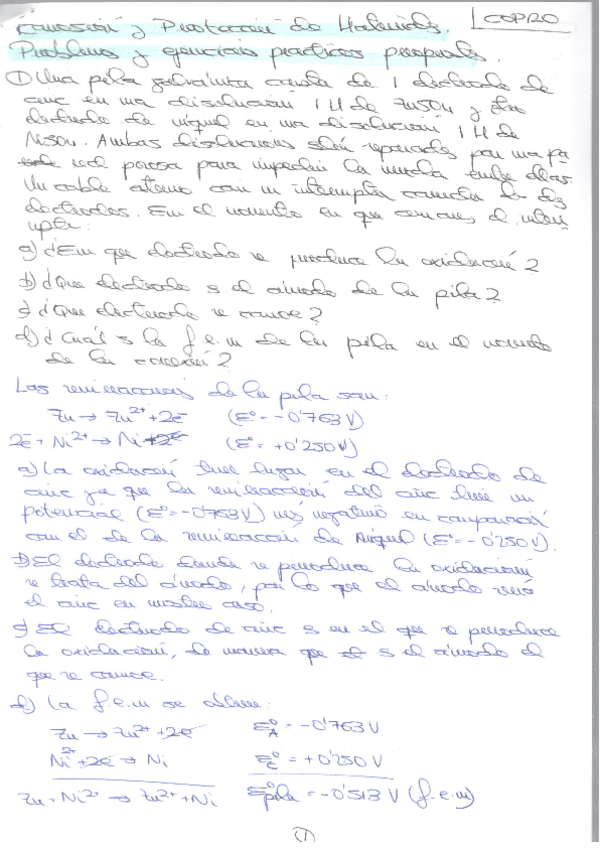 Corrosión y Protección de Materiales. COPRO
Problemas y ejercicios prácticos propuestos.
① Una pila galvánica consta de 1 electrodo de
cinc en una disolución 1M de ZnSO4 y otro
electrodo de níquel en una disolución 1M de
NiSO4. Ambas disoluciones están separadas por una pa
red porosa para impedir la mezcla entre ellas.
Un cable externo con un interruptor conecta los dos
electrodos. En el momento en que se el inter-
ruptor:
a) ¿En que electrodo se produce la oxidación?
b) ¿Que electrodo s el ánodo de la pila?
c) ¿Que electrodo se corroe?
d) ¿Cuál s la f.e.m de la pila en el momento
de la conexión?
Las semireacciones de la pila son:
Zn → Zn²⁺ + 2e⁻ (E° = -0'763 V)
2e⁻ + Ni²⁺ → Ni (E° = +0'250 V)
a) La oxidación tiene lugar en el electrodo de
cinc ya que la semireacción del cinc tiene un
potencial (E° = -0'763 V) más negativo en comparación
con el de la semireacción de Niquel (E° = -0'250 V).
b) El electrodo donde se produce la oxidación
se trata del ánodo, por lo que el ánodo será
el cinc en nuestro caso.
c) El electrodo de cinc s en el que se produce
la oxidación, de manera que s el ánodo el
que se corroe.
d) La f.e.m se obtiene:
Zn → Zn²⁺ + 2e⁻ E°A = -0'763 V
Ni²⁺ + 2e⁻ → Ni E°C = +0'250 V
Zn + Ni²⁺ → Zn²⁺ + Ni E°pila = -0'513 V (f.e.m)
①